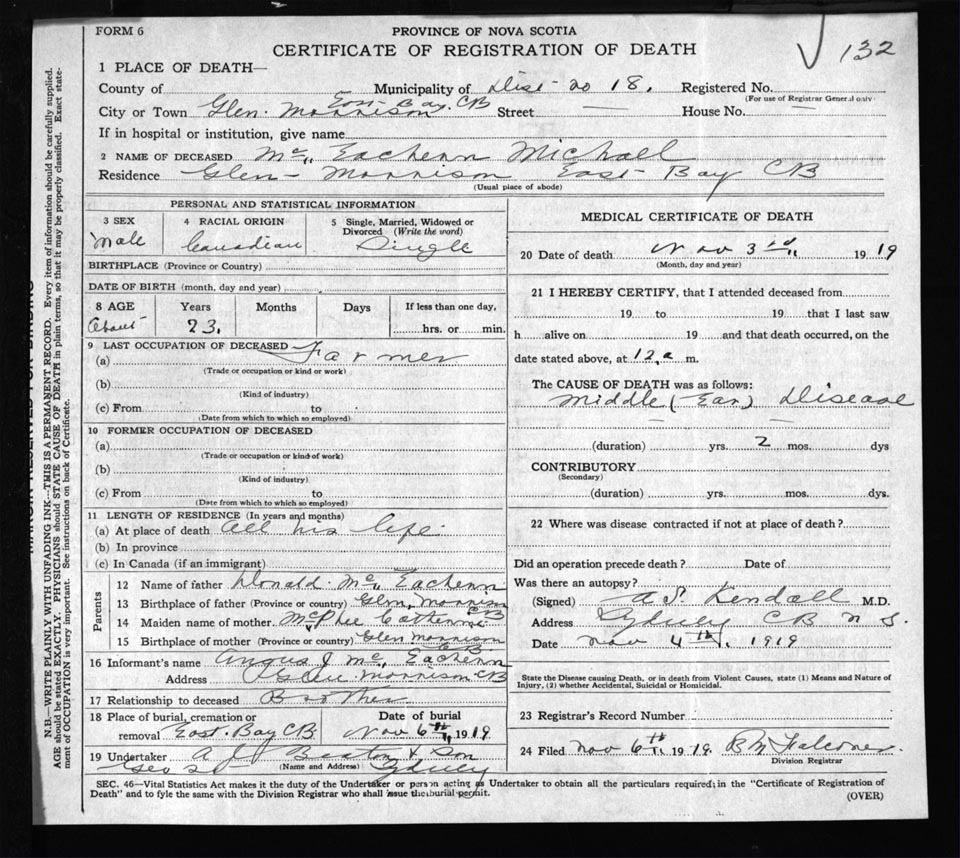 FORM 6
PROVINCE OF NOVA SCOTIA
132
CERTIFICATE OF REGISTRATION OF DEATH
1 PLACE OF DEATH—
County of Municipality of Dist no 18. Registered No.
(For use of Registrar General only)
East Bay CB
City or Town Glen Morrison Street — House No. —
If in hospital or institution, give name
2 NAME OF DECEASED Mc Eachern Michall
Residence Glen Morrison East Bay CB
(Usual place of abode)
PERSONAL AND STATISTICAL INFORMATION
3 SEX 4 RACIAL ORIGIN 5 Single, Married, Widowed or
Divorced (Write the word)
Male Canadian Single
BIRTHPLACE (Province or Country)
DATE OF BIRTH (month, day and year)
8 AGE Years Months Days If less than one day,
About 23. hrs. or min.
9 LAST OCCUPATION OF DECEASED
(a) Farmer
(Trade or occupation or kind or work)
(b)
(Kind of industry)
(c) From to
(Date from which to which so employed)
10 FORMER OCCUPATION OF DECEASED
(a)
(Trade or occupation or kind of work)
(b)
(Kind of industry)
(c) From to
(Date from which to which so employed)
11 LENGTH OF RESIDENCE (In years and months)
(a) At place of death all his life
(b) In province
(c) In Canada (if an immigrant)
Parents
12 Name of father Donald Mc Eachern
13 Birthplace of father (Province or country) Glen Morrison
CB
14 Maiden name of mother McPhee Catherine
15 Birthplace of mother (Province or country) Glen Morrison
CB
16 Informant's name Angus J Mc Eachern
Address Glen Morrison CB
17 Relationship to deceased Brother
18 Place of burial, cremation or Date of burial
removal East Bay CB Nov 6th 1919
19 Undertaker A J Beaton & Son
(Name and Address)
Geo St Sydney
MEDICAL CERTIFICATE OF DEATH
20 Date of death Nov 3rd 1919
(Month, day and year)
21 I HEREBY CERTIFY, that I attended deceased from
19 to 19 that I last saw
h alive on 19 and that death occurred, on the
date stated above, at 12 a m.
The CAUSE OF DEATH was as follows:
Middle (Ear) Disease
(duration) yrs. 2 mos. dys
CONTRIBUTORY
(Secondary)
(duration) yrs. mos. dys.
22 Where was disease contracted if not at place of death?
Did an operation precede death? Date of
Was there an autopsy?
(Signed) A S Kendall M.D.
Address Sydney CB N S.
Date Nov 4th, 1919
State the Disease causing Death, or in death from Violent Causes, state (1) Means and Nature of
Injury, (2) whether Accidental, Suicidal or Homicidal.
23 Registrar's Record Number
24 Filed Nov 6th 1919. B M Falconer.
Division Registrar
SEC. 46—Vital Statistics Act makes it the duty of the Undertaker or person acting as Undertaker to obtain all the particulars required in the "Certificate of Registration of
Death" and to fyle the same with the Division Registrar who shall issue the burial permit.
(OVER)
N.B.—WRITE PLAINLY WITH UNFADING INK—THIS IS A PERMANENT RECORD. Every item of information should be carefully supplied.
AGE should be stated EXACTLY. PHYSICIANS should STATE CAUSE OF DEATH in plain terms, so that it may be properly classified. Exact state-
ment of OCCUPATION is very important. See instructions on back of Certificate.